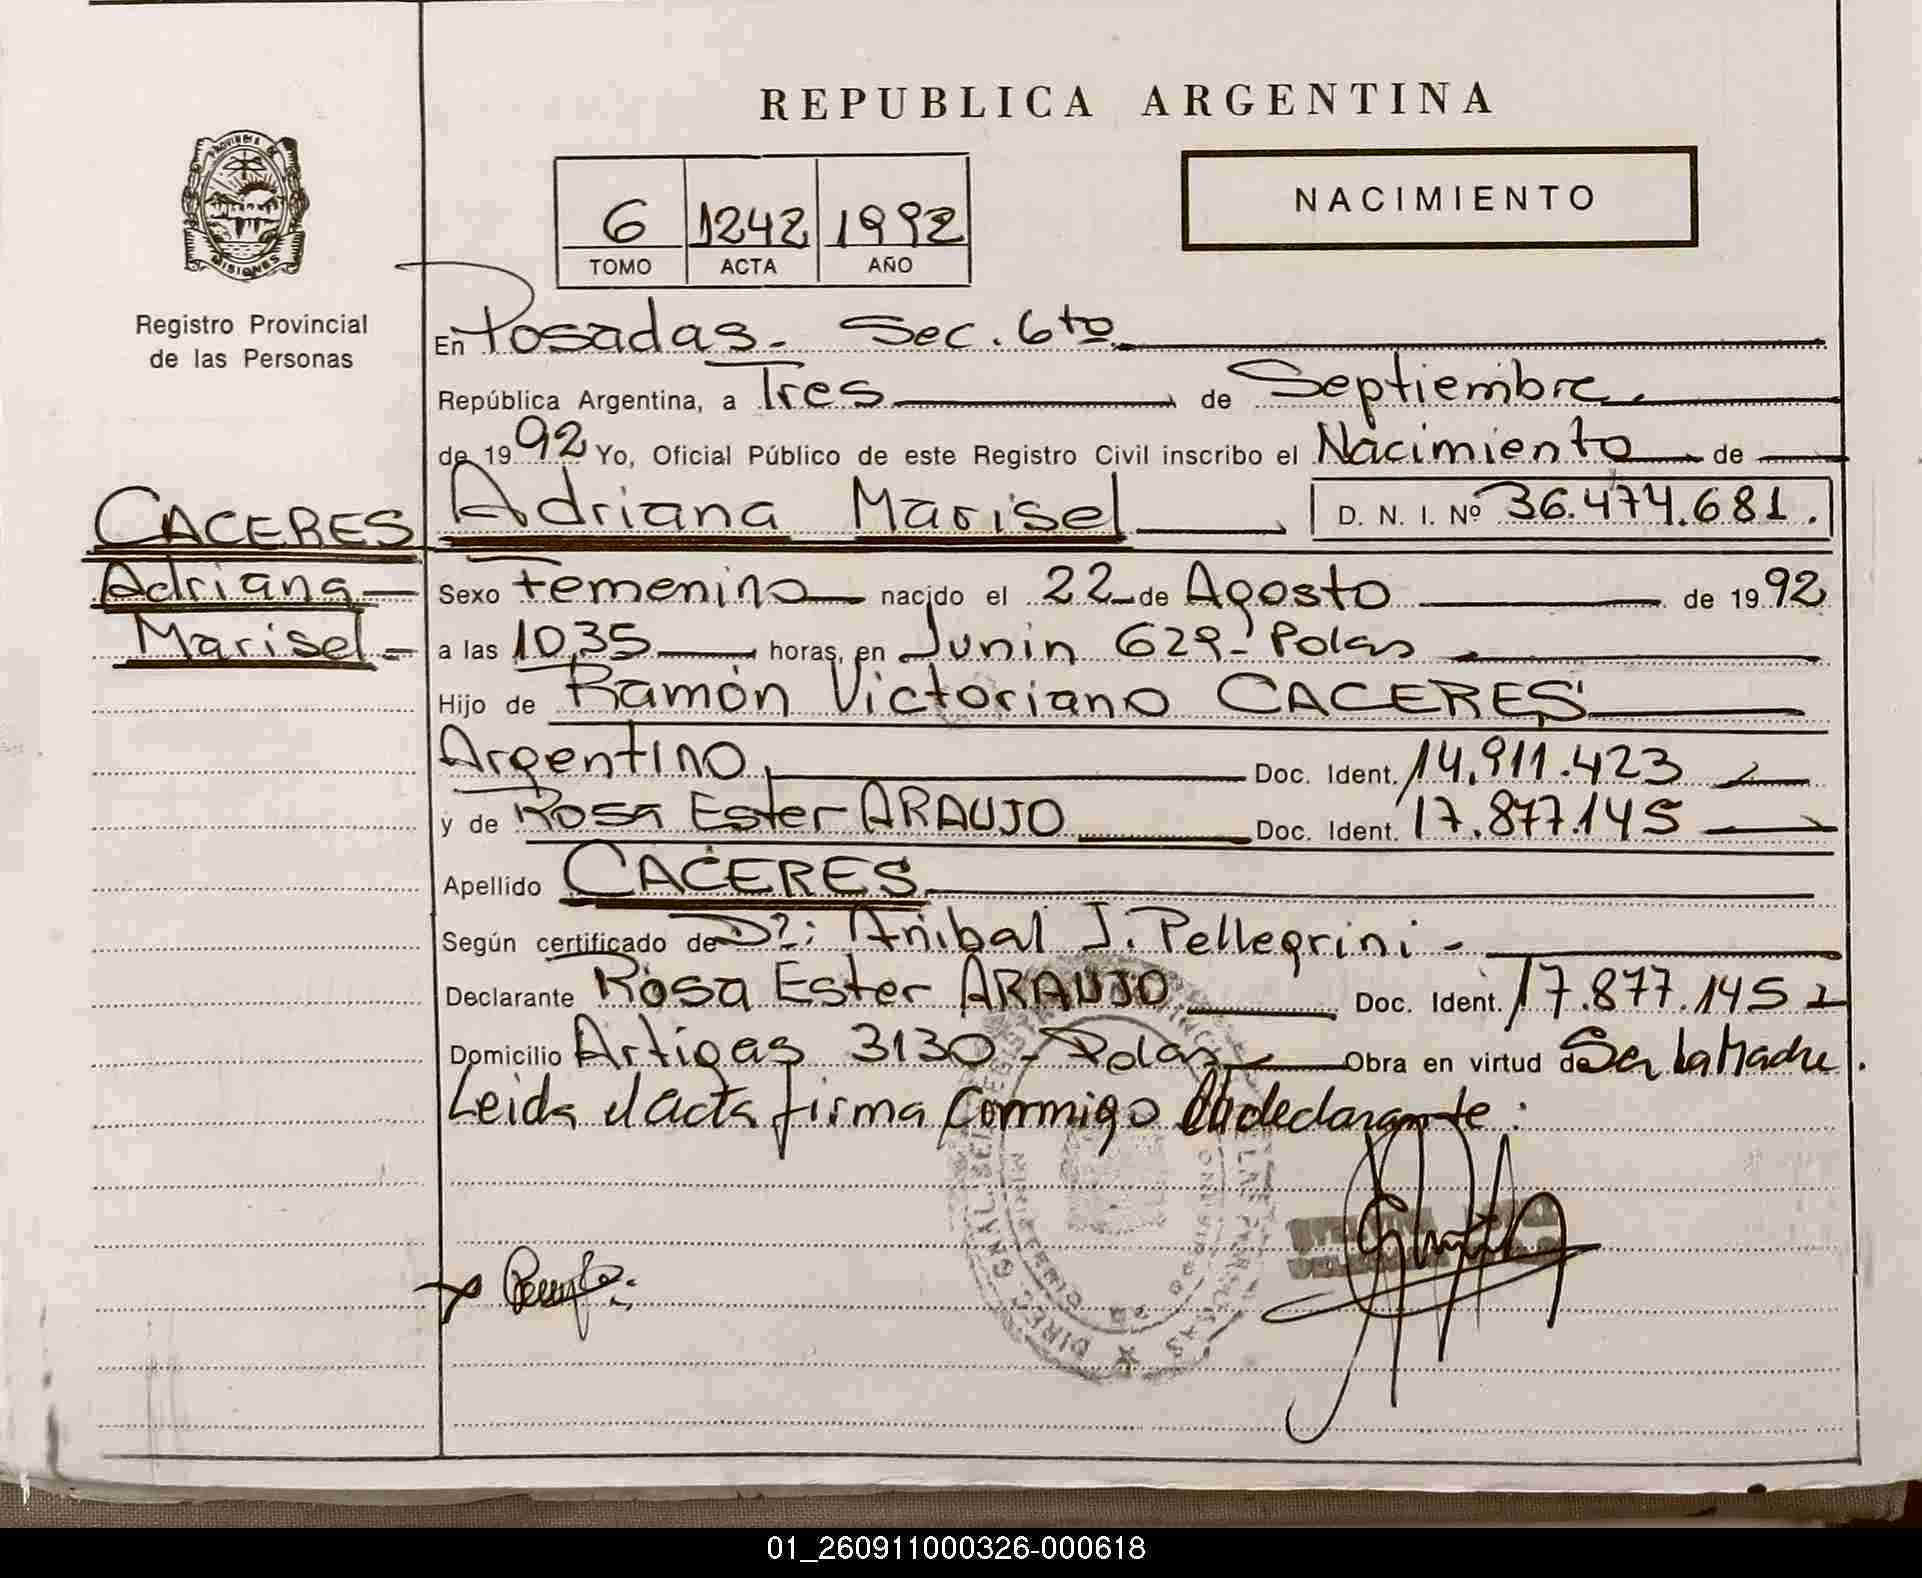 REPUBLICA ARGENTINA
PROVINCIA DE
MISIONES
Registro Provincial
de las Personas
NACIMIENTO
6 1242 1992
TOMO ACTA AÑO
En Posadas - Sec. 6to
República Argentina, a Tres de Septiembre
de 1992 Yo, Oficial Público de este Registro Civil inscribo el Nacimiento de
CACERES
Adriana
Marisel
Adriana Marisel D. N. I. Nº 36.474.681.
Sexo Femenino nacido el 22 de Agosto de 1992
a las 10,35 horas, en Junin 629 - Pdas
Hijo de Ramón Victoriano CACERES
Argentino Doc. Ident. 14.911.423
y de Rosa Ester ARAUJO Doc. Ident. 17.877.145
Apellido CACERES
Según certificado de Dr: Anibal J. Pellegrini -
Declarante Rosa Ester ARAUJO Doc. Ident. 17.877.145
Domicilio Artigas 3130 - Pdas Obra en virtud de Ser La Madre.
Leida el acta firma Conmigo la declarante:
01_260911000326-000618